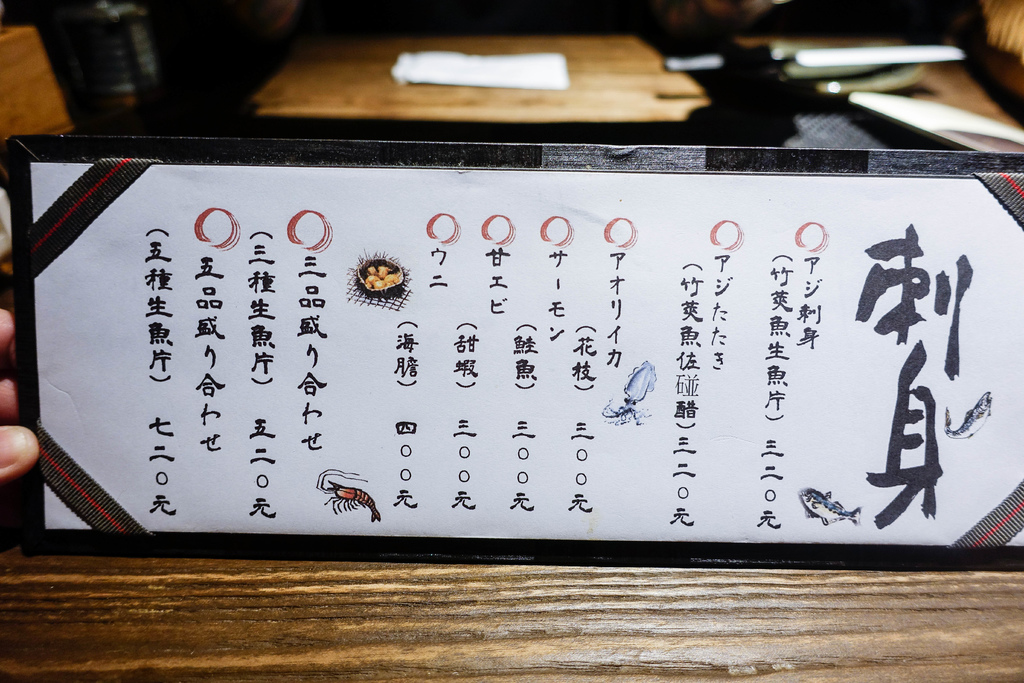 刺身
アジ刺身
（竹莢魚生魚片）三二〇元
アジたたき
（竹莢魚佐碰醋）三二〇元
アオリイカ
（花枝）三〇〇元
サーモン
（鮭魚）三〇〇元
甘エビ
（甜蝦）三〇〇元
ウニ
（海膽）四〇〇元
三品盛り合わせ
（三種生魚片）五二〇元
五品盛り合わせ
（五種生魚片）七二〇元